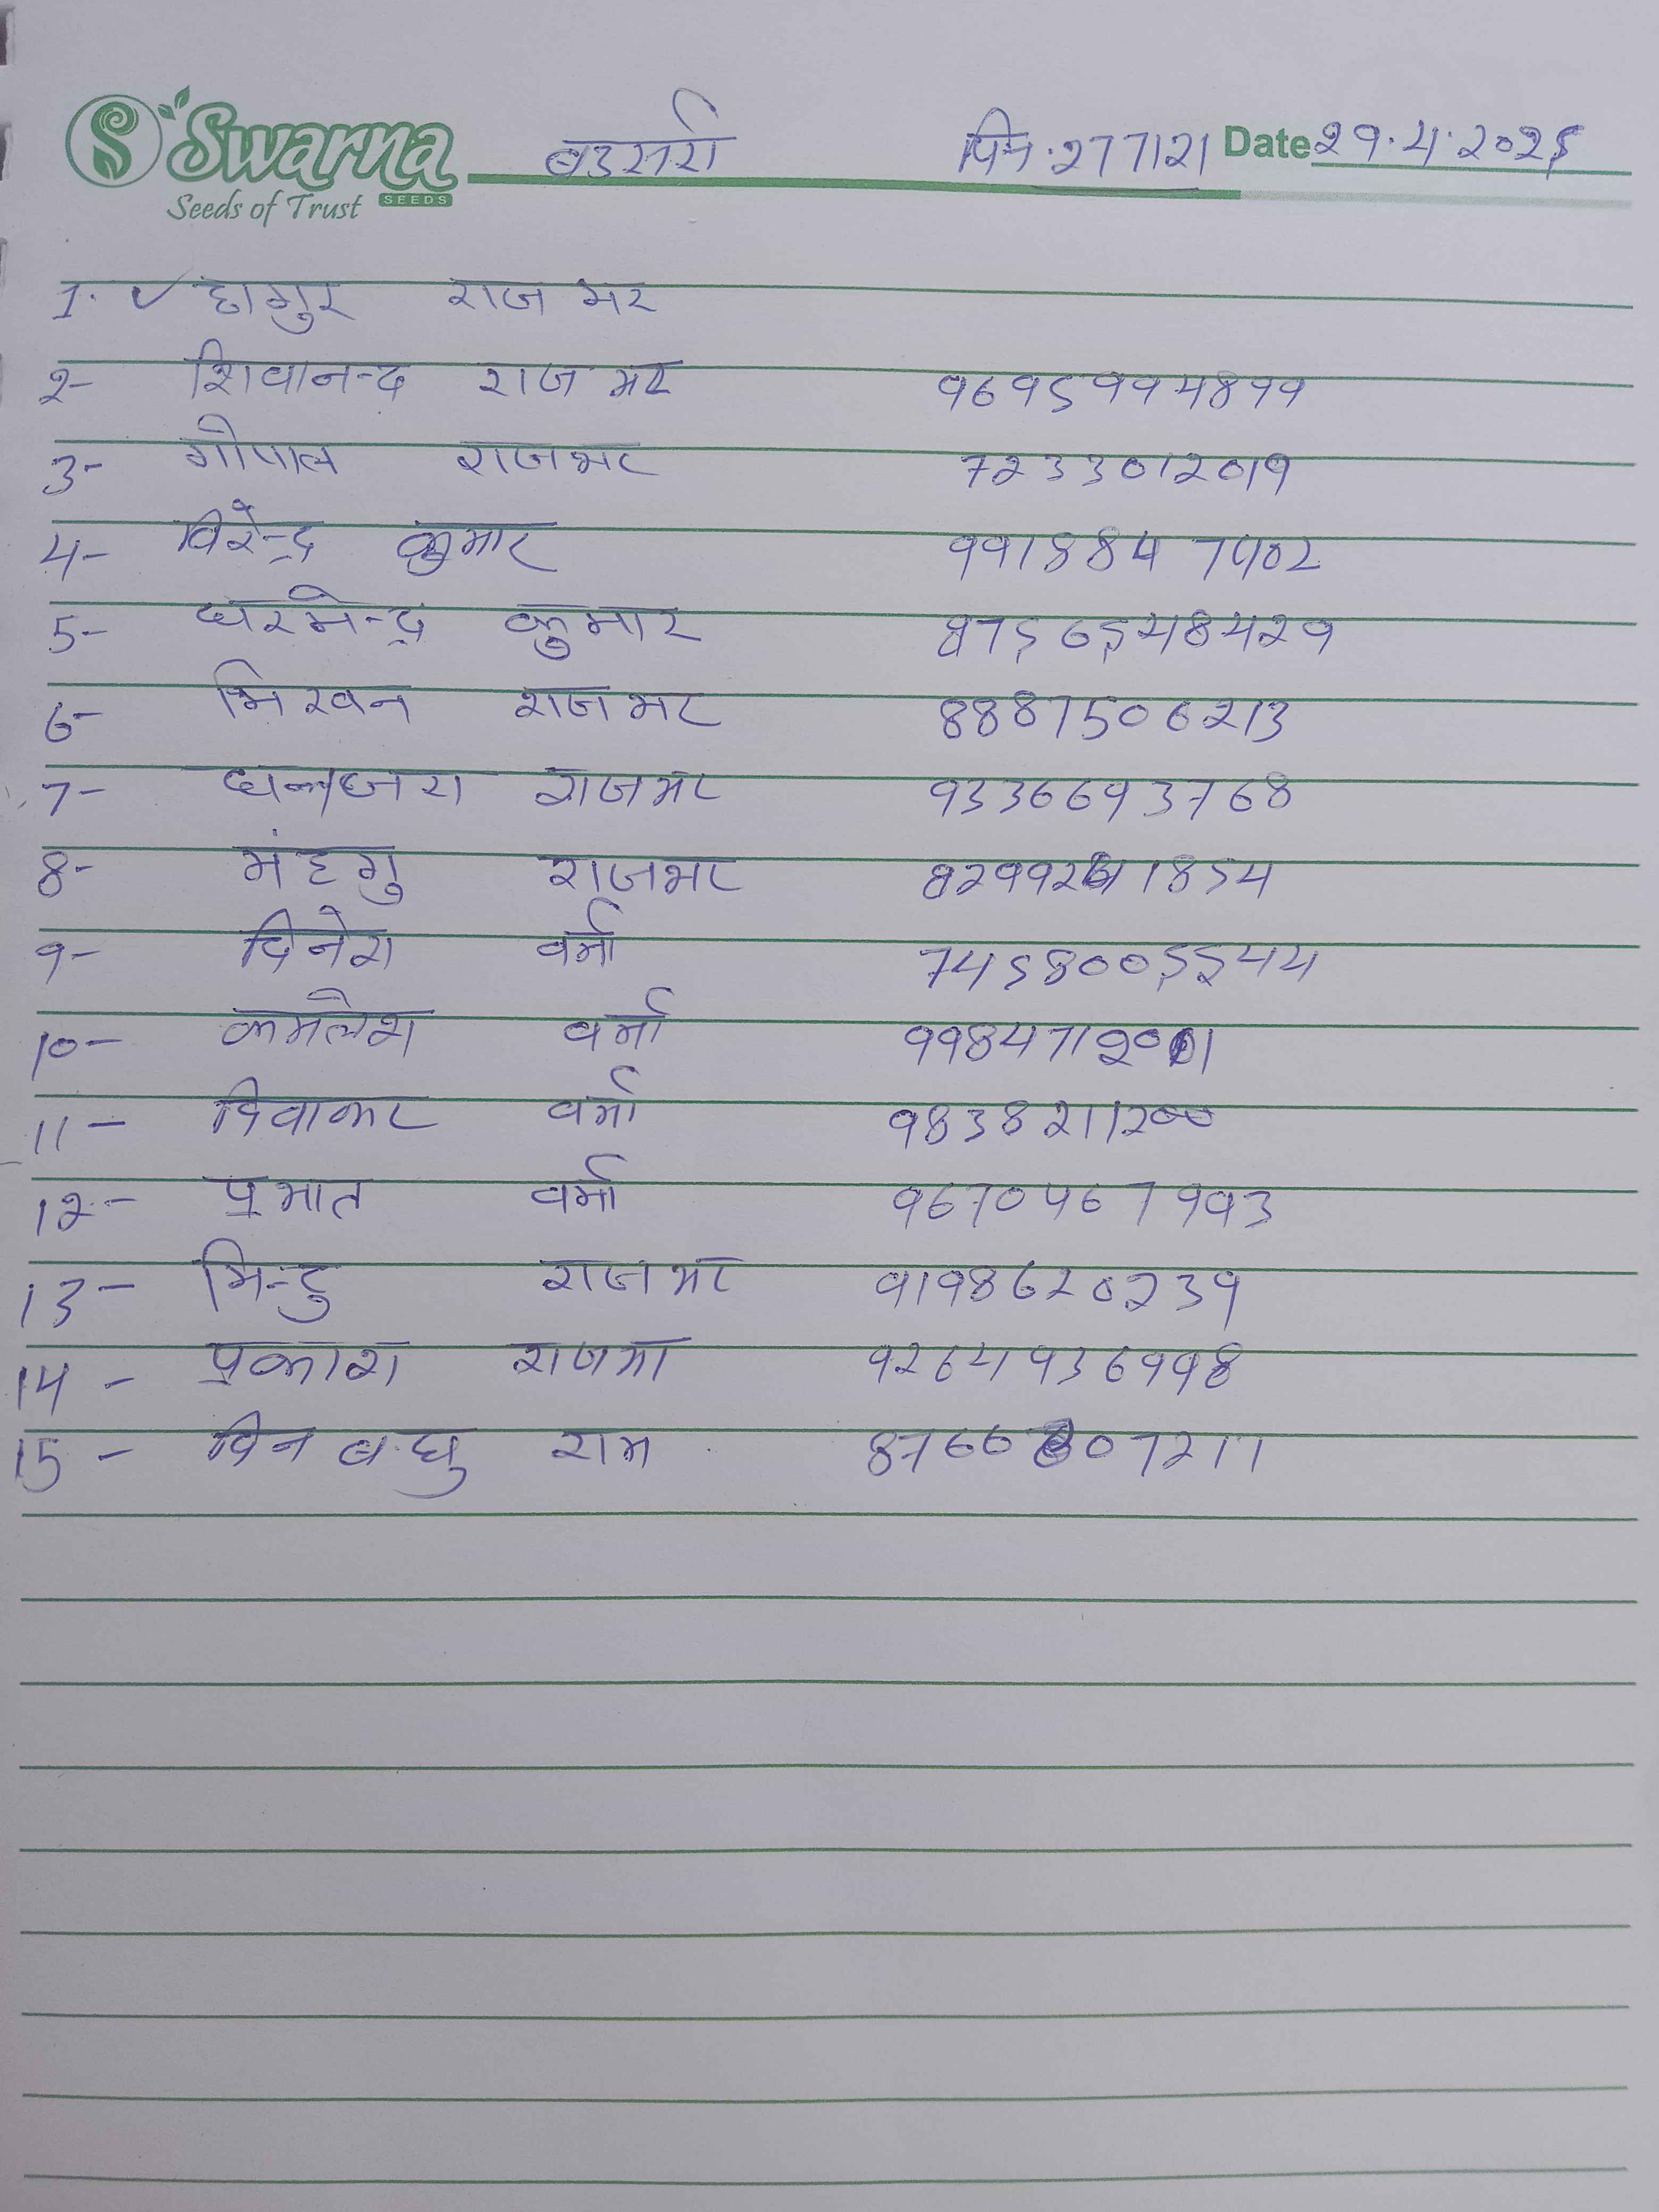 Swarna
SEEDS
Seeds of Trust
बउसरी पिन.277121 Date 29.4.2025
1. ✓ हागुर राज भर
2- शिवानन्द राज भर 9695994899
3- गोपाल राजभर 7233012019
4- विरेन्द्र कुमार 9918847402
5- धरमेन्द्र कुमार 8756548429
6- भिखन राजभर 8887506213
7- धनन्जय राजभर 9336693768
8- मंहगु राजभर 829921854
9- दिनेश वर्मा 7458005544
10- कमलेश वर्मा 9984712001
11- दिवाकर वर्मा 9838211200
12- प्रभात वर्मा 9670467993
13- मिन्टु राजभर 9198620239
14- प्रकाश राजभर 9264936998
15- दिनबन्धु राम 8766807211